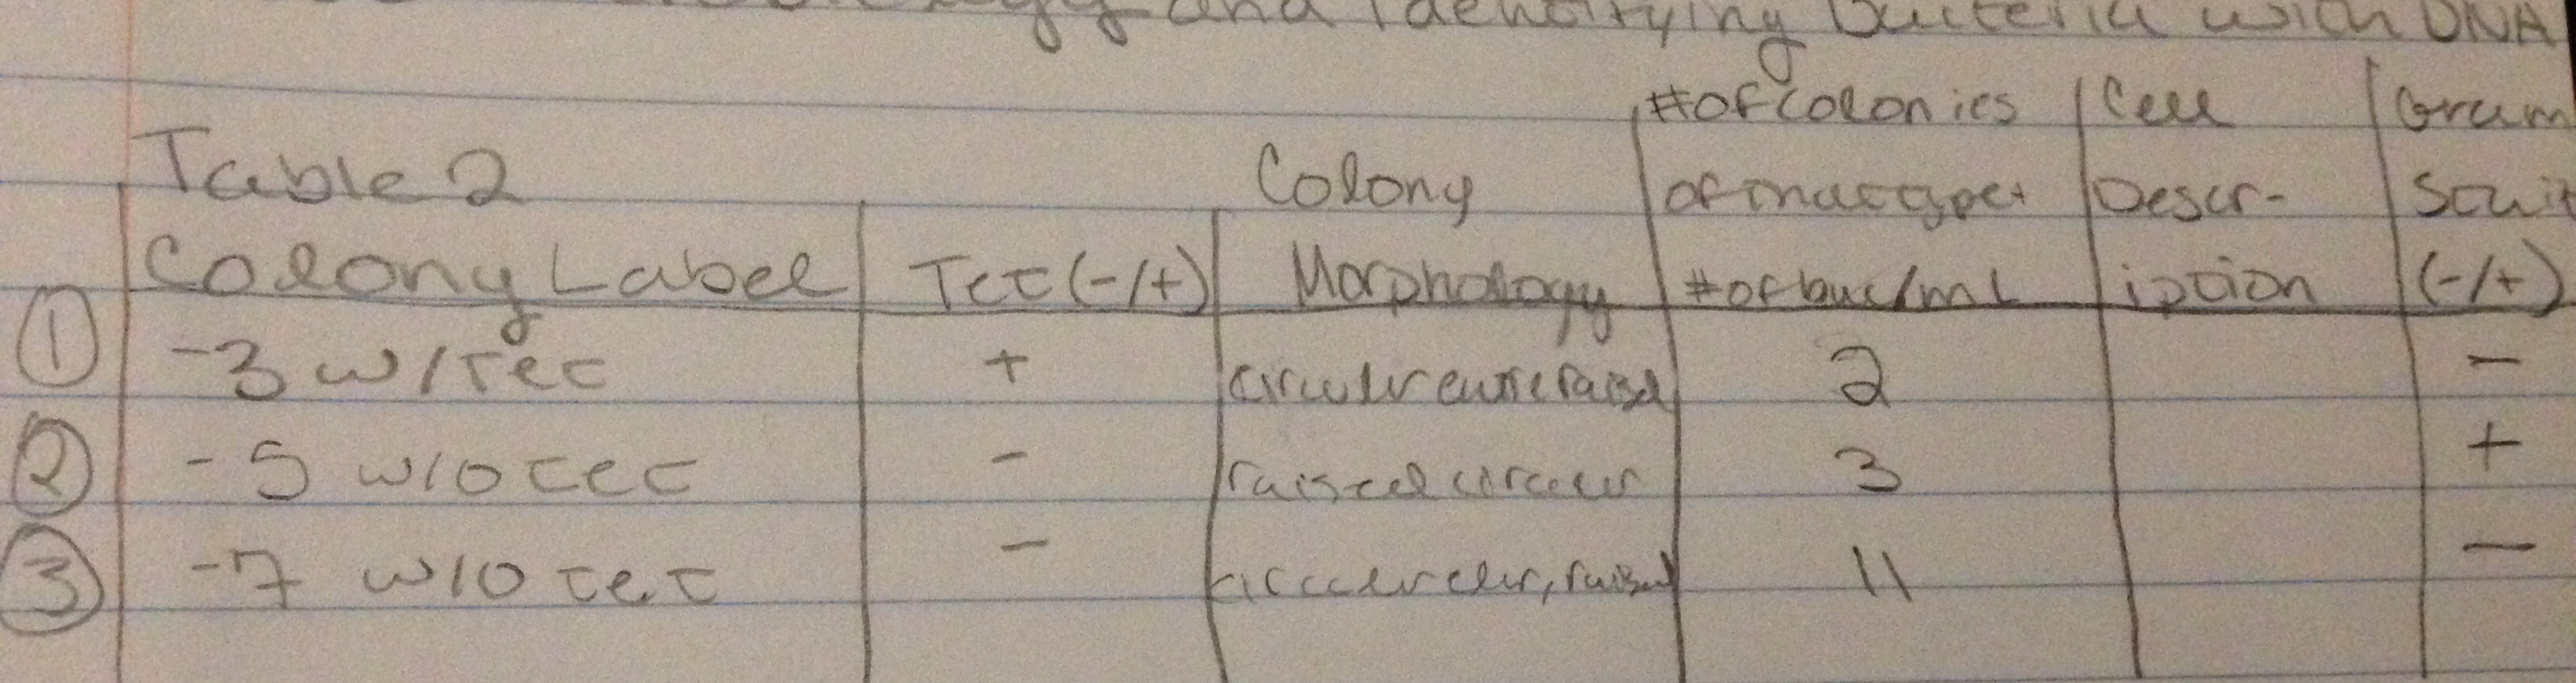 and Identifying bacteria with DNA
Table 2
Colony Label | Tet (-/+) | Colony Morphology | # of colonies of that type + # of bac/mL | Cell Descr-iption | Gram Stain (-/+)
① -3 w/tet | + | circular entire raised | 2 | | -
② -5 w/o tet | - | raised circular | 3 | | +
③ -7 w/o tet | - | circular, raised | 11 | | -